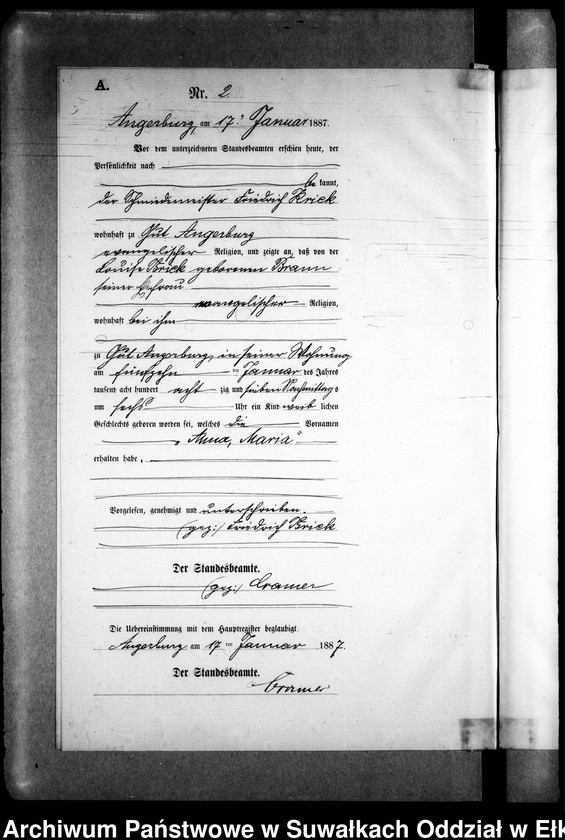 A.
Nr. 2.
Angerburg, am 17. Januar 1887.
Vor dem unterzeichneten Standesbeamten erschien heute, der
Persönlichkeit nach
be kannt,
der Schmiedemeister Friedrich Krick
wohnhaft zu Gut Angerburg
evangelischer Religion, und zeigte an, daß von der
Louise Krick geborenen Braun
seiner Ehefrau
evangelischer Religion,
wohnhaft bei ihm
zu Gut Angerburg, in seiner Wohnung
am fünfzehn ten Januar des Jahres
tausend acht hundert acht zig und sieben Nachmittags
um sechs Uhr ein Kind weib lichen
Geschlechts geboren worden sei, welches die Vornamen
„Anna, Maria"
erhalten habe,
Vorgelesen, genehmigt und unterschrieben.
(gez:) Friedrich Krick
Der Standesbeamte.
(gez:) Cramer
Die Uebereinstimmung mit dem Hauptregister beglaubigt.
Angerburg am 17 ten Januar 1887.
Der Standesbeamte.
Cramer
Archiwum Państwowe w Suwałkach Oddział w Ełk